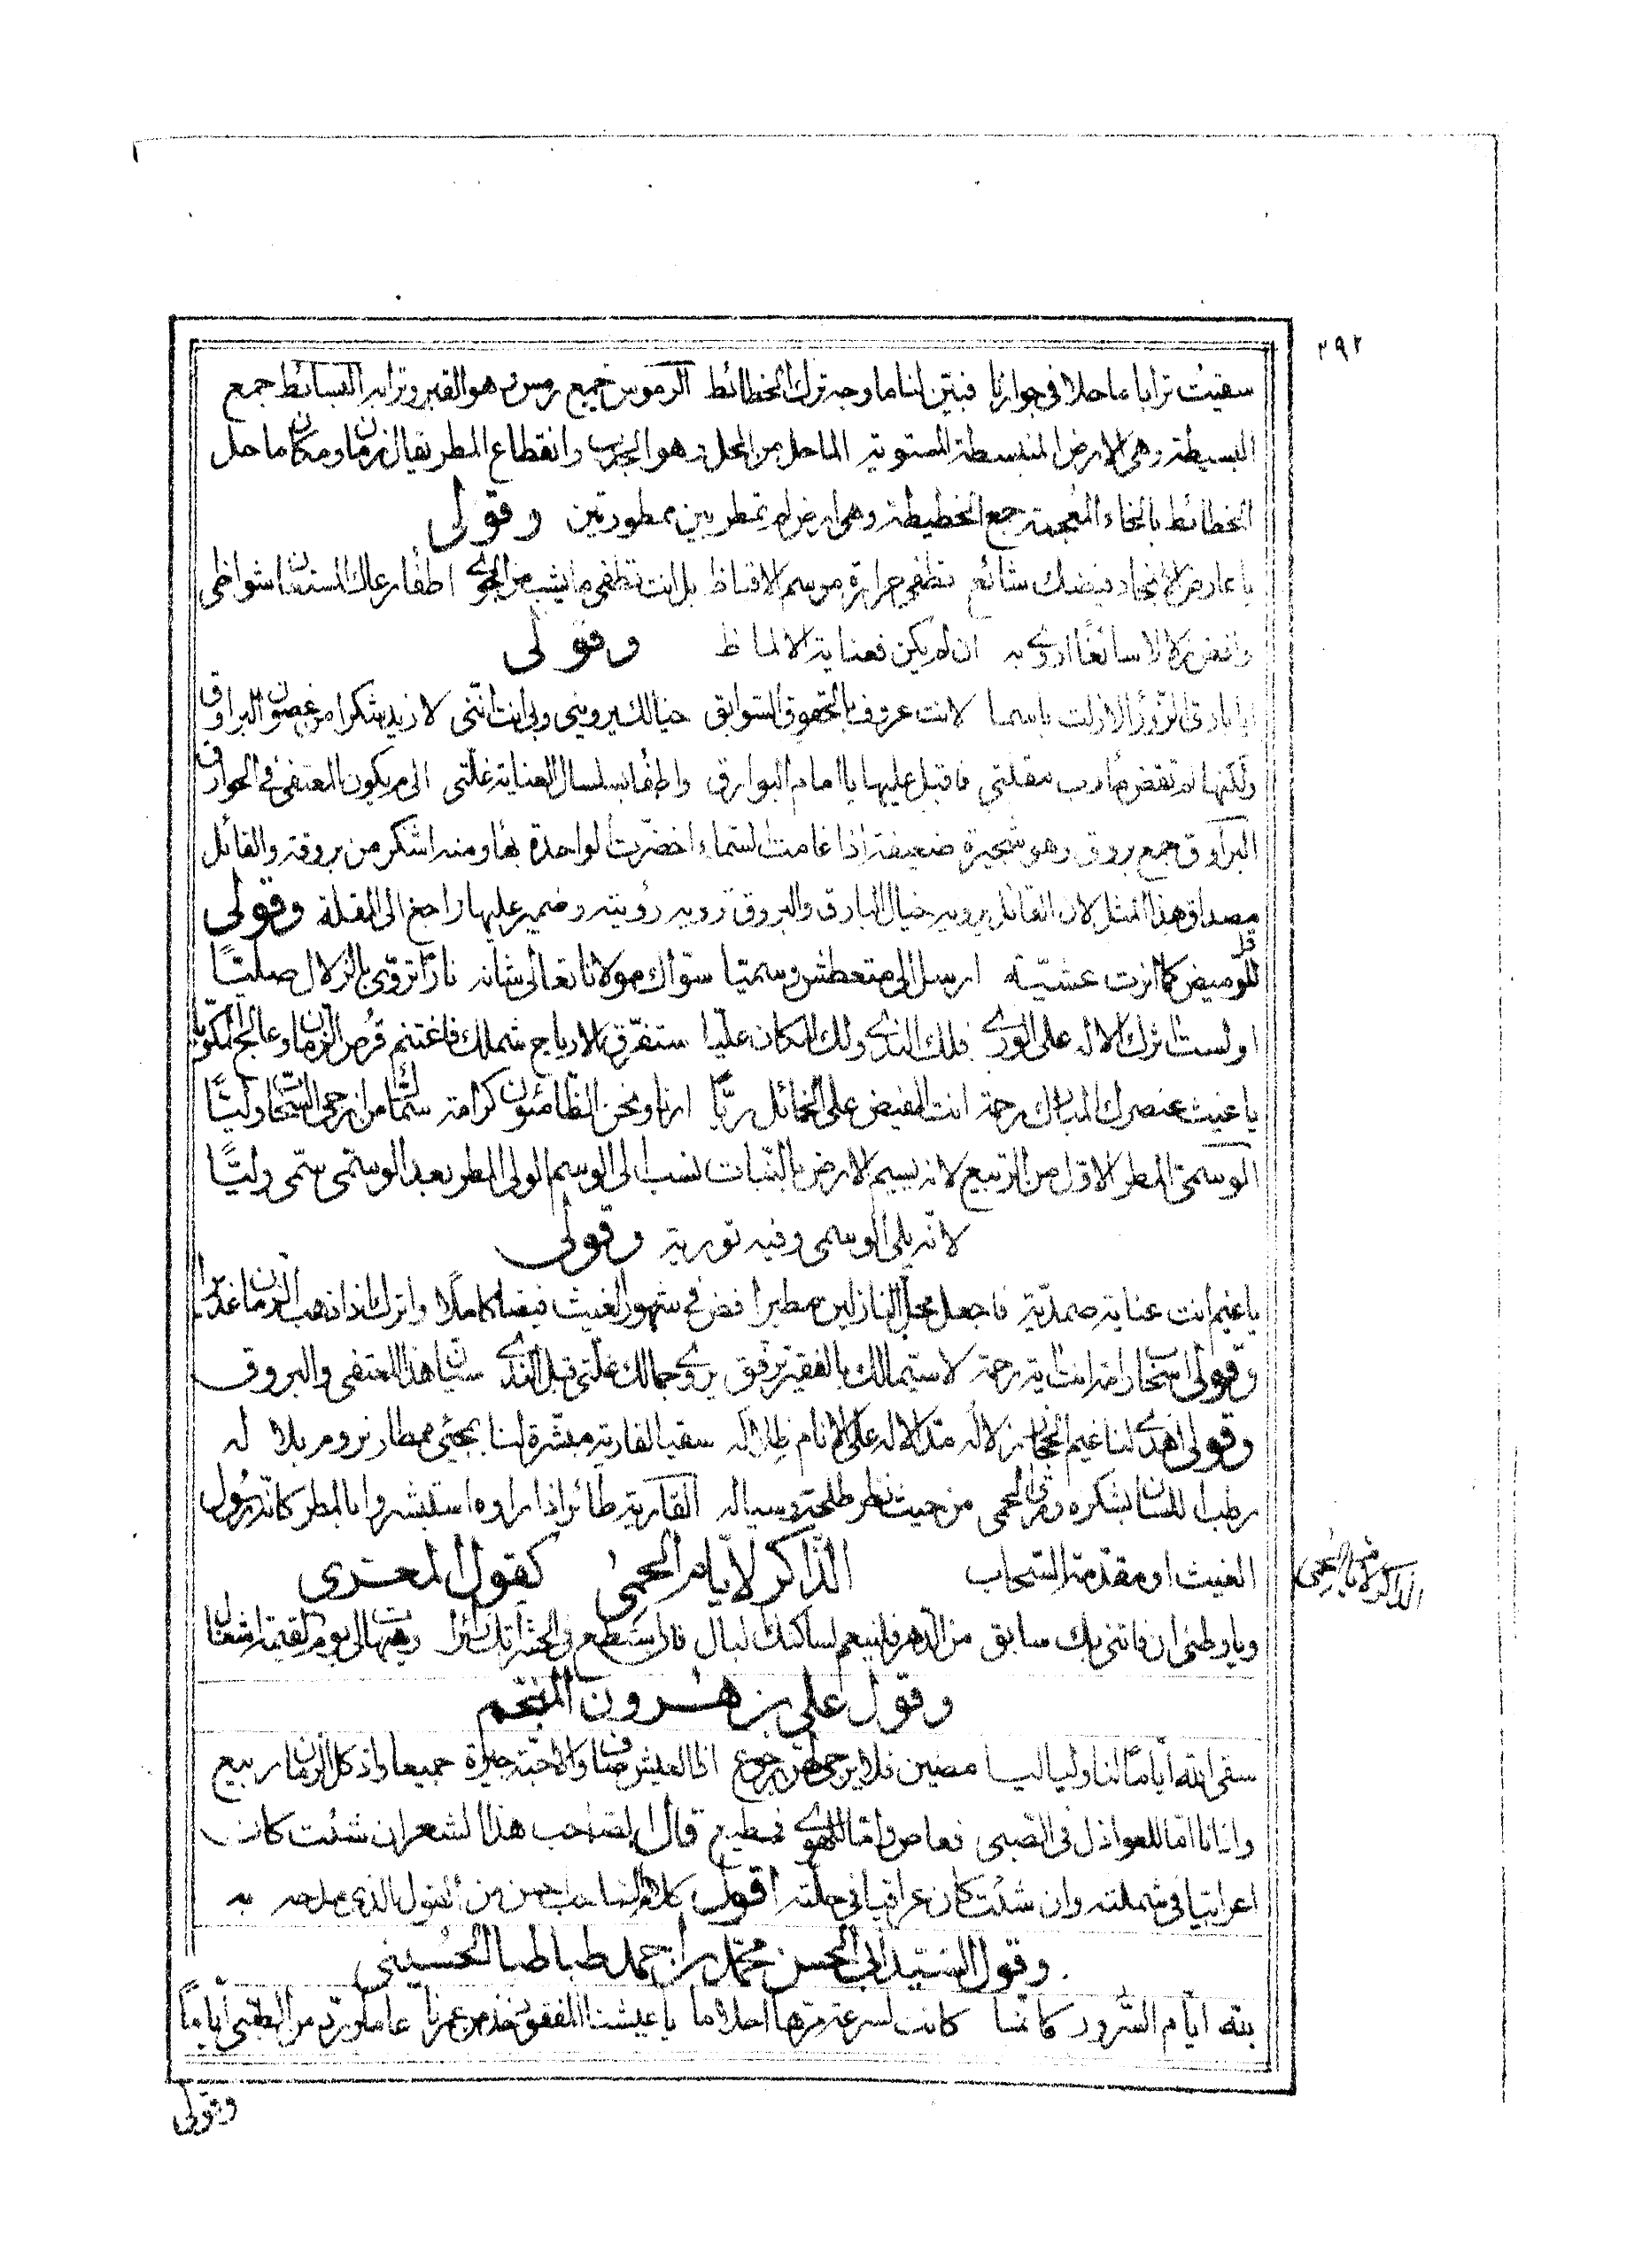 ٢٩٢
سقيت ترابا ماحلا في جوارنا فبيّن لنا ما وجه ترك الخطائط الرموس جميع رمس وهو القبر وترابه البسائط جمع
البسيطة وهي الارض المنبسطة المستوية الماحل من المحل وهو الجدب وانقطاع المطر يقال زمان ومكان ماحل
الخطائط بالخاء المعجمة جمع الخطيطة وهي ارض لم تمطر بين ممطورتين وقولي
يا عارض الانجاد فيضك شائع تطفي حرارة موسم الاقياظ بل انت تطفي ما يشب من الجوى اطفأ رعاك المستعان شواظي
وافض زلالا سائغا اروى به ان لم يكن فعناية الالماظ وقولي
ايا بارق الزوراء لا زلت باسما لانت عروف بالحقوق السوابق حيالك يرويني وبي انت انني لازيد شكرا من غصون البراوق
ولكنها لم تقض مأرب مقلتي فاقبل عليها يا امام البوارق واطفأ بسلسال العناية غلتي الى م يكون المعتفي في الحوارق
البراوق جمع بروق وهو شجيرة ضعيفة اذا غامت السماء اخضرت الواحدة بهاء ومنه اشكر من بروقة والقائل
مصداق هذا المثل لان القائل يرويه خيال البارق والبروق ترويه رؤيته وضمير عليها راجع الى المقلة وقولي
قل للوميض كما ازت عشيّه ارسل الى متعطش وسميّا سوّاك مولانا تعالى شانه نارا تروّي بالزلال صليّا
او لست اثرك الاله على الورى فلك الندى ولك المكان عليّا ستفرّق الارياح شملك فاغتنم فرص الزمان وعالج المكويّا
يا غيث عنصرك المبارك رحمة انت المفيض على الخمائل ريّا ارنا ونحن الظامئون كرامة سمّاك من ازجى السحاب وليّا
الوسمي المطر الاول من الربيع لانه يسم الارض بالنبات نسب الى الوسم الولي المطر بعد الوسمي سمّي وليّا
لانه يلي الوسمي وفيه تورية وقولي
يا غيم انت عناية صمديّة فاجعل محل النازلين مطيرا فض في شهور الغيث فيضا كاملا واترك اذا ذهب الزمان غديرا
وقولي اسحاب رامة انت اية رحمة لاستيمالك بالفقير ترفق يروي جمالك غلتي قبل الندى سيّان هذا المعتفي والبروق
وقولي اهدى لنا غيم الحجاز زلاله مدّ الاله على الانام ظلاله سقيا لقارية مبشرة لنا بمجيئ ممطار نروم بلاله
رطب اللسان بشكره ورق الحمى من حيث نظر طلحه وسياله القارية طائر اذا راوه استبشروا بالمطر كانه رسول
الغيث او مقدمة السحاب الذّاكر لايّام الحمى كقول المعرّي
الذاكر لايام الحمى
ويا وطني ان فاتني بك سابق من الدهر فلينعم لساكنك البال فان استطع في الحشر اتك زائرا وهيهات لي يوم القيمة اشغال
وقول علي بن هرون المنجّم
سقى الله ايّاما لنا ولياليا مضين فلا يرجى لهن رجوع اذا العيش صاف والاحبّة جيرة جميعا واذ كل الزمان ربيع
واذ انا امّا للعواذل في الصبى فعاص وامّا للهوى فمطيع قال الصاحب هذا الشعر ان شئت كان
اعرابيا في شملته وان شئت كان عراقيا في حلّته اقول كلام الصاحب حسن من القول الذي مدحه به
وقول السيّد ابي الحسن محمّد بن احمد طباطبا الحسيني
لله ايّام السّرور كانّما كانت لسرعة مرّها احلاما يا عيشنا المفقود خذ من عمرنا عاما وردّ من الصّبى ايّاما
وقولي